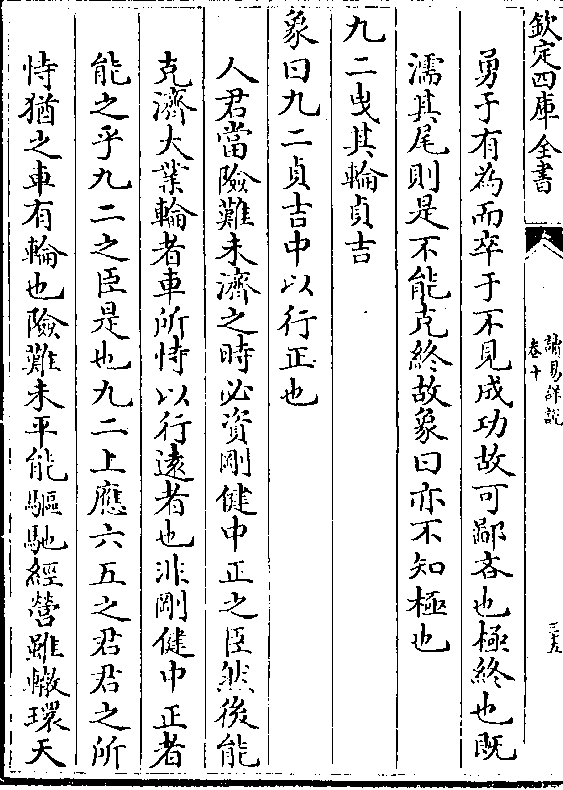 欽定四庫全書
讀易詳說
卷十
三五
勇于有為而卒于不見成功故可鄙吝也極終也既
濡其尾則是不能克終故象曰亦不知極也
九二曳其輪貞吉
象曰九二貞吉中以行正也
人君當險難未濟之時必資剛健中正之臣然後能
克濟大業輪者車所恃以行遠者也非剛健中正者
能之乎九二之臣是也九二上應六五之君君之所
恃猶之車有輪也險難未平能驅馳經營雖轍環天